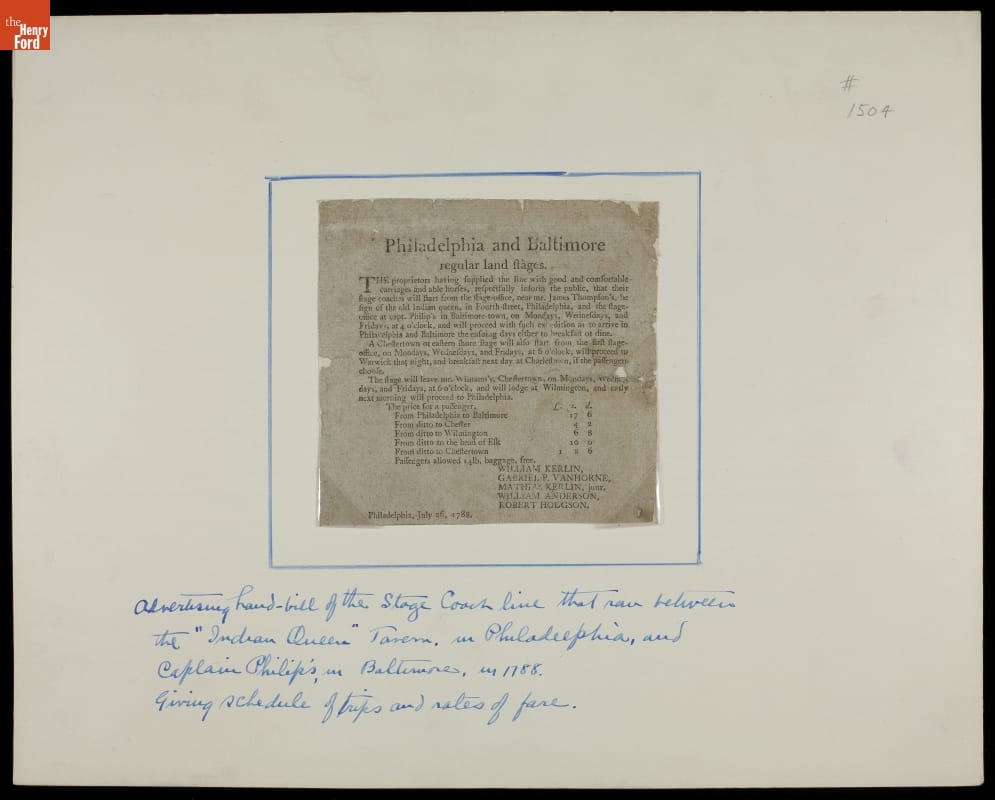 the
Henry
Ford
#
1504
Philadelphia and Baltimore
regular land ſtages.
THE proprietors having ſupplied the line with good and comfortable
carriages and able horſes, reſpectfully inform the public, that their
ſtage coaches will ſtart from the ſtage-office, near mr. James Thompſon's, he
ſign of the old Indian queen, in Fourth-ſtreet, Philadelphia, and the ſtage-
office at capt. Philip's in Baltimore-town, on Mondays, Wedneſdays, and
Fridays, at 4 o'clock, and will proceed with ſuch ex dition as to arrive in
Philadelphia and Baltimore the enſuing days either to breakfaſt or dine.
A Cheſtertown or eaſtern ſhore ſtage will alſo ſtart from the firſt ſtage-
office, on Mondays, Wedneſdays, and Fridays, at 6 o'clock, will proceed to
Warwick that night, and breakfaſt next day at Charleſtown, if the paſſengers
chooſe.
The ſtage will leave mr. Cheſtertown, on Mondays, Wednes-
days, and Fridays, at 6 o'clock, and will lodge at Wilmington, and early
next morning will proceed to Philadelphia.
The price for a paſſenger, £. s. d.
From Philadelphia to Baltimore 17 6
From ditto to Cheſter 4 2
From ditto to Wilmington 6 8
From ditto to the head of Elk 10 0
From ditto to Cheſtertown 1 2 6
Paſſengers allowed 14lb. baggage, free.
WILLIAM KERLIN,
GABRIEL P. VANHORNE,
MATHIAS KERLIN, junr.
WILLIAM ANDERSON,
ROBERT HODGSON.
Philadelphia, July 26, 1788.
Advertising hand-bill of the Stage Coach line that ran between
the "Indian Queen" Tavern, in Philadelphia, and
Captain Philip's, in Baltimore, in 1788.
Giving schedule of trips and rates of fare.